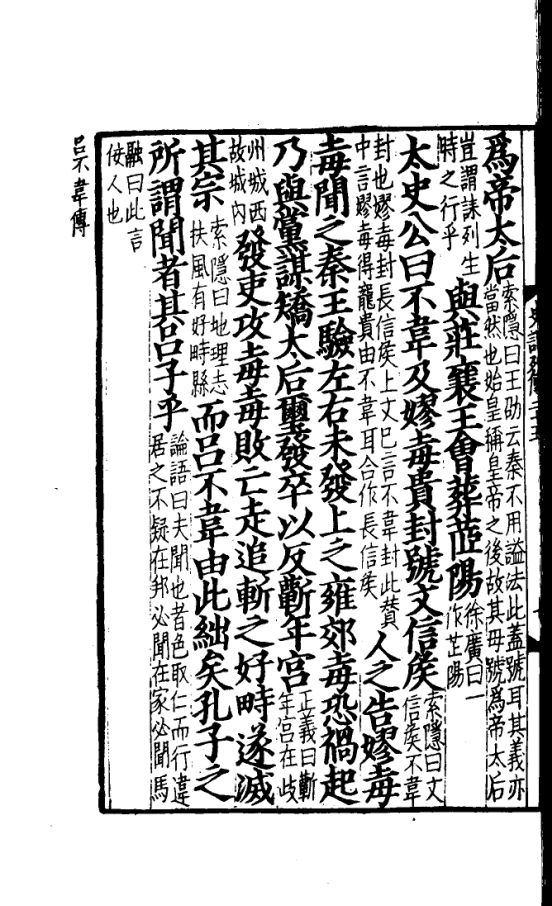 為帝太后索隱曰王劭云秦不用謚法此蓋號耳其義亦當然也始皇稱皇帝之後故其母號為帝太后
豈謂誄列生時之行乎與莊襄王會葬茝陽徐廣曰一作芷陽
太史公曰不韋及嫪毐貴封號文信侯索隱曰文信侯不韋
封也嫪毐封長信侯上文已言不韋封此贊中言嫪毐得寵貴由不韋耳合作長信侯人之告嫪毐
毐聞之秦王驗左右未發上之雍郊毐恐禍起
乃與黨謀矯太后璽發卒以反蘄年宮正義曰蘄年宮在歧
州城西故城內發吏攻毐毐敗亡走追斬之好畤遂滅
其宗索隱曰地理志扶風有好畤縣而呂不韋由此絀矣孔子之
所謂聞者其呂子乎論語曰夫聞也者色取仁而行違居之不疑在邦必聞在家必聞馬
融曰此言佞人也
呂不韋傳